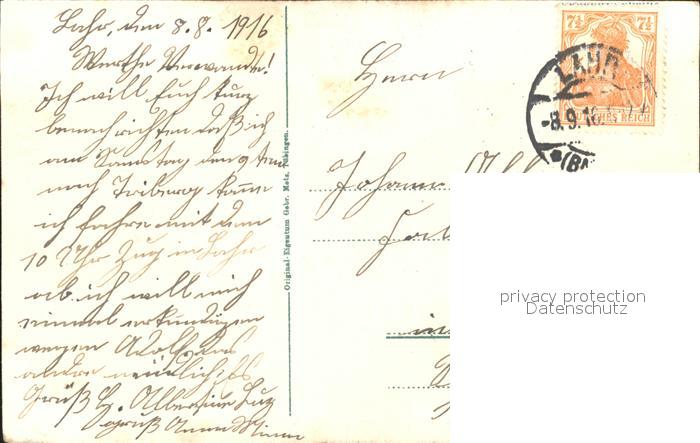 Lahr, den 8.8. 1916
Werthe Verwandte!
Ich will Euch kurz
benachrichten daß ich
am Samstag den 9ten
nach Triberg komme
ich fahre mit dem
10 Uhr Zug in Lahr
ab ich will mich
einmal erkundigen
wegen Adolf das
andre mündlich
Gruß
Gruß
Original-Eigentum Gebr. Metz, Tübingen.
Herrn
Johann
in
7½ 7½
DEUTSCHES REICH
LAHR
-8.9.16.
*(BA
privacy protection
Datenschutz